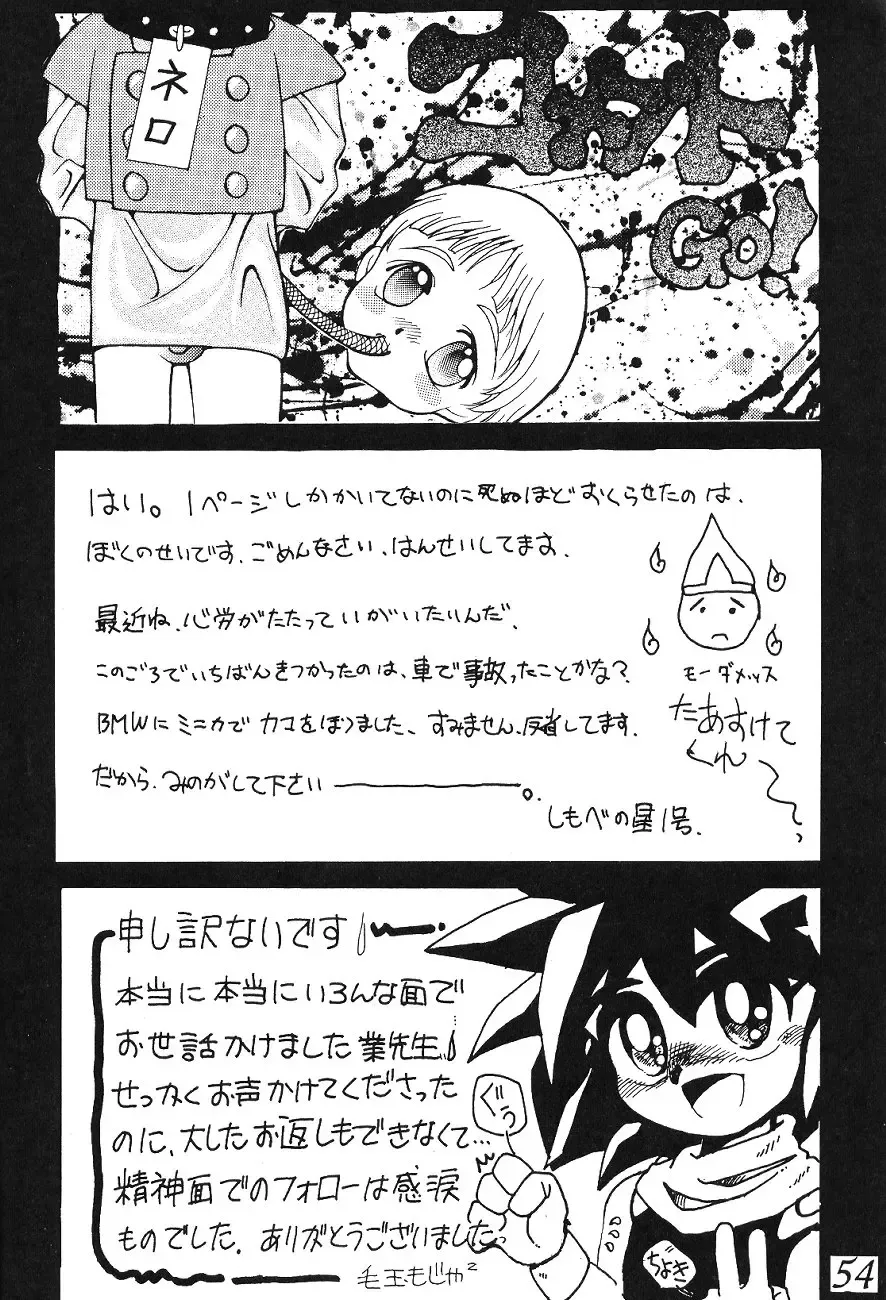 ネロ
GO!
はい。1ページしかかいてないのに死ぬほどおくらせたのは、
ぼくのせいです、ごめんなさい、はんせいしてます。
最近ね、心労がたたっていがいたいんだ、
このごろでいちばんきつかったのは、車で事故ったことかな?
BMWにミニカでカマをほりました、すみません、反省してます。
だから、みのがして下さい――――。
しもべの星1号.
モーダメッス
たあすけて
くれ〜っ
申し訳ないです
本当に本当にいろんな面で
お世話かけました業先生
せっかくお声かけてくださった
のに、大したお返しもできなくて…
精神面でのフォローは感涙
ものでした。ありがとうございましたっ
毛玉もじゃ²
ぐぅ
ちょき
54